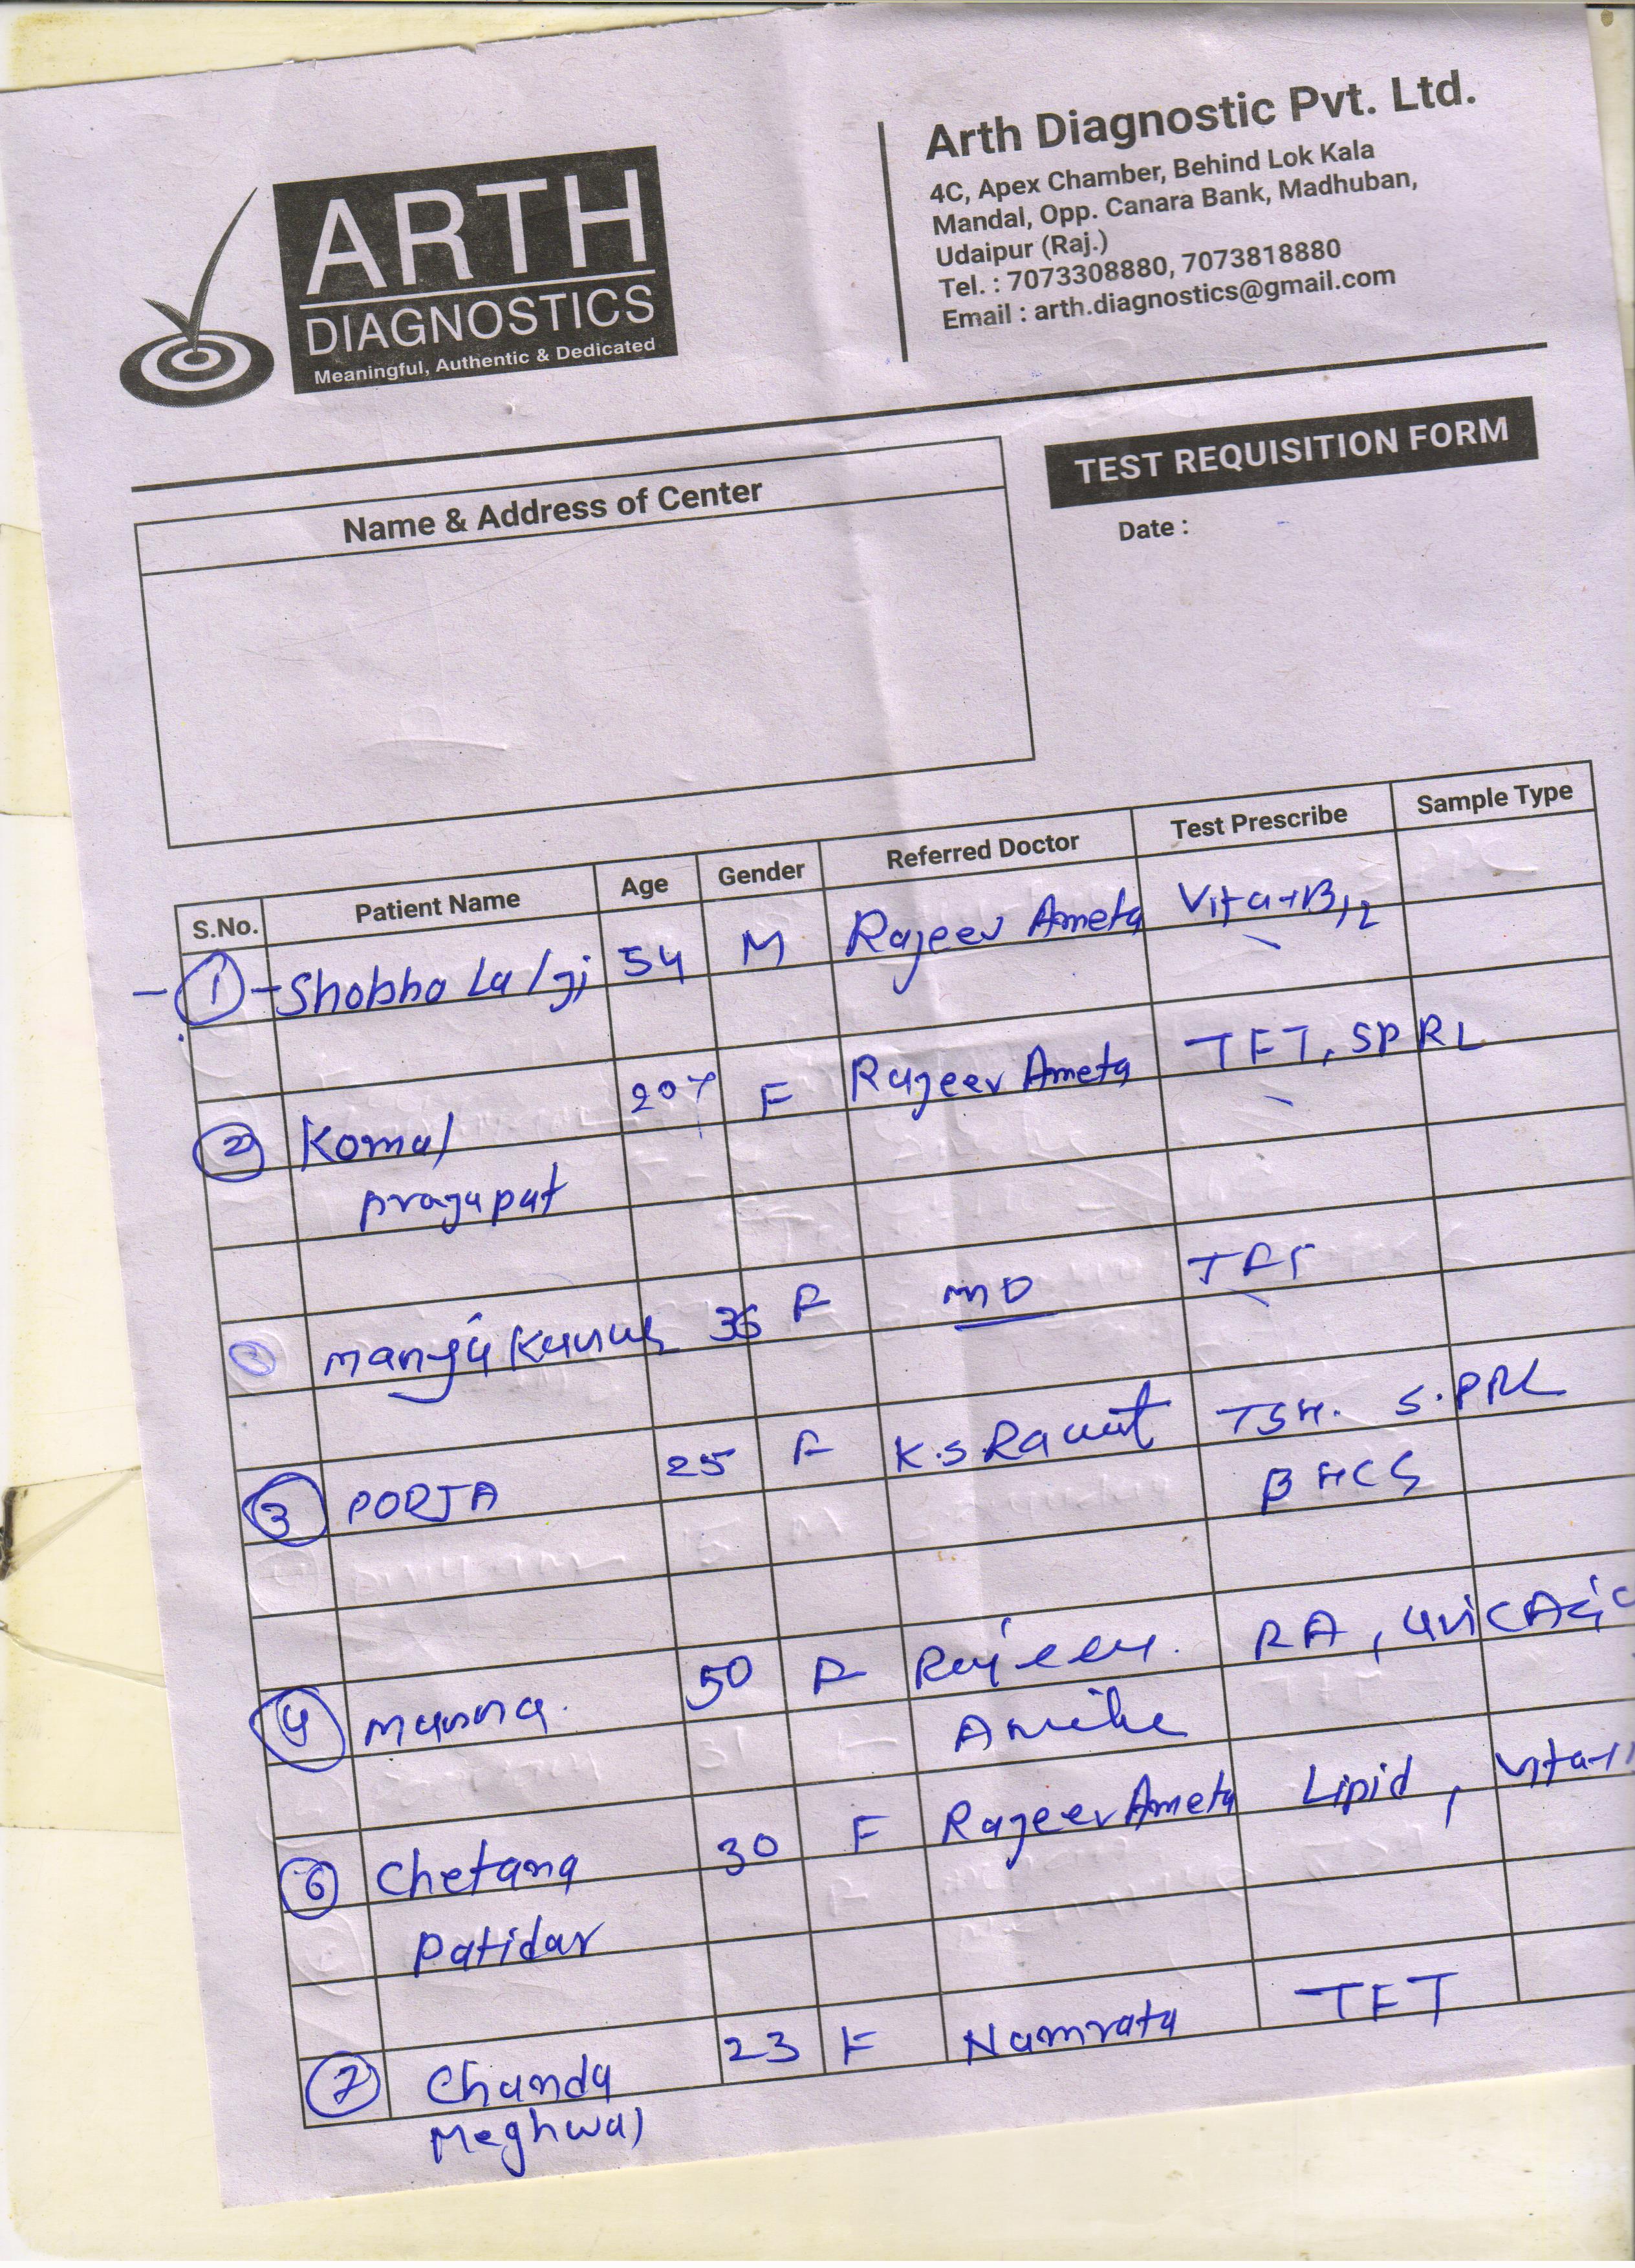 ARTH
DIAGNOSTICS
Meaningful, Authentic & Dedicated
Arth Diagnostic Pvt. Ltd.
4C, Apex Chamber, Behind Lok Kala
Mandal, Opp. Canara Bank, Madhuban,
Udaipur (Raj.)
Tel. : 7073308880, 7073818880
Email : arth.diagnostics@gmail.com
Name & Address of Center
TEST REQUISITION FORM
Date :
S.No. Patient Name Age Gender Referred Doctor Test Prescribe Sample Type
1 Shobha Lalji 54 M Rajeev Ameta Vita-B12
2 Komal 20Y F Rajeev Ameta TFT, SPRL
prajapat
Manju 36 F MD TFT
3 POOJA 25 F K.S Rawat TSH. S.PRL
B HCG
4 Manna. 50 F Rajeev RA, Uric Acid
6 Chetana 30 F Rajeev Ameta Lipid, Vita-
Patidar
7 Chanda 23 F Namrata TFT
Meghwal